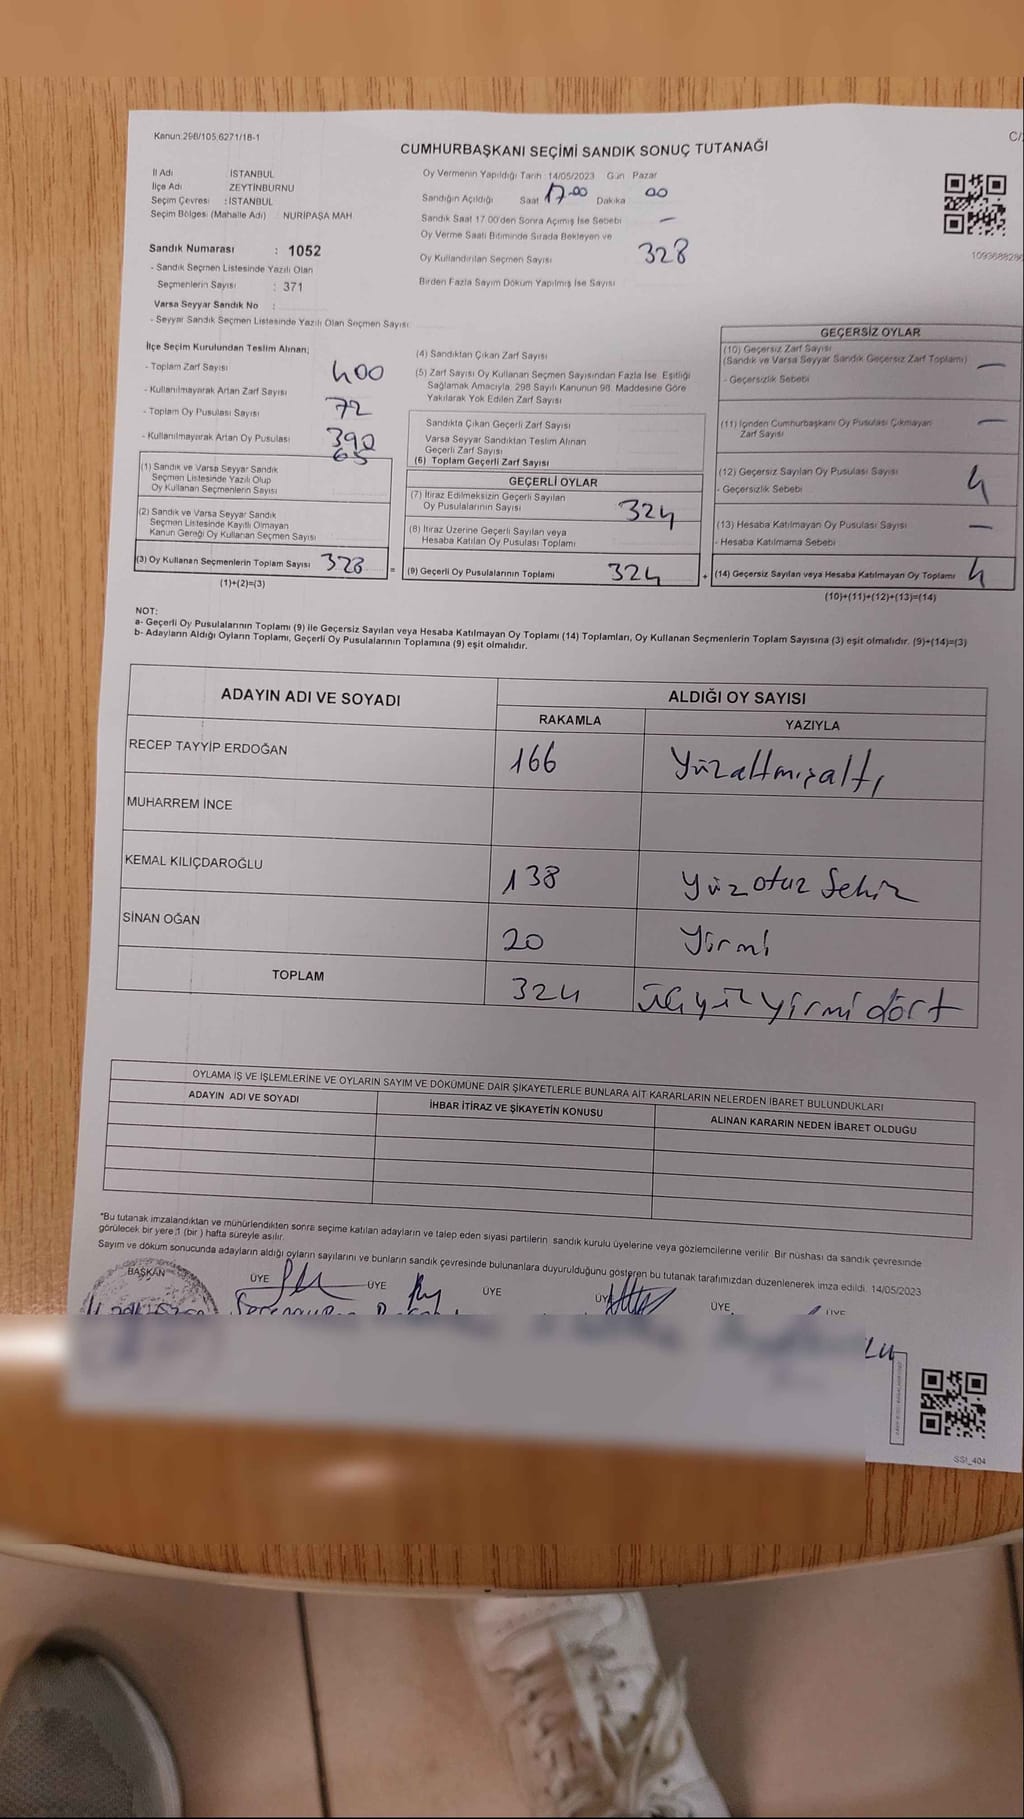 Kanun:298/105,6271/18-1
C/
CUMHURBAŞKANI SEÇİMİ SANDIK SONUÇ TUTANAĞI
İl Adı : İSTANBUL
İlçe Adı : ZEYTİNBURNU
Seçim Çevresi : İSTANBUL
Seçim Bölgesi (Mahalle Adı) : NURİPAŞA MAH.
Oy Vermenin Yapıldığı Tarih : 14/05/2023 Gün Pazar
Sandığın Açıldığı Saat 17.00 Dakika 00
Sandık Saat 17.00'den Sonra Açılmış İse Sebebi —
Oy Verme Saati Bitiminde Sırada Bekleyen ve
Oy Kullandırılan Seçmen Sayısı 328
Birden Fazla Sayım Döküm Yapılmış İse Sayısı
Sandık Numarası : 1052
- Sandık Seçmen Listesinde Yazılı Olan
Seçmenlerin Sayısı : 371
Varsa Seyyar Sandık No :
- Seyyar Sandık Seçmen Listesinde Yazılı Olan Seçmen Sayısı:
İlçe Seçim Kurulundan Teslim Alınan;
- Toplam Zarf Sayısı 400
- Kullanılmayarak Artan Zarf Sayısı 72
- Toplam Oy Pusulası Sayısı 390
- Kullanılmayarak Artan Oy Pusulası 65
(1) Sandık ve Varsa Seyyar Sandık
Seçmen Listesinde Yazılı Olup
Oy Kullanan Seçmenlerin Sayısı
(2) Sandık ve Varsa Seyyar Sandık
Seçmen Listesinde Kayıtlı Olmayan
Kanun Gereği Oy Kullanan Seçmen Sayısı
(3) Oy Kullanan Seçmenlerin Toplam Sayısı 328
(1)+(2)=(3)
(4) Sandıktan Çıkan Zarf Sayısı
(5) Zarf Sayısı Oy Kullanan Seçmen Sayısından Fazla İse, Eşitliği
Sağlamak Amacıyla, 298 Sayılı Kanunun 98. Maddesine Göre
Yakılarak Yok Edilen Zarf Sayısı
Sandıkta Çıkan Geçerli Zarf Sayısı
Varsa Seyyar Sandıktan Teslim Alınan
Geçerli Zarf Sayısı
(6) Toplam Geçerli Zarf Sayısı
GEÇERLİ OYLAR
(7) İtiraz Edilmeksizin Geçerli Sayılan
Oy Pusulalarının Sayısı 324
(8) İtiraz Üzerine Geçerli Sayılan veya
Hesaba Katılan Oy Pusulası Toplamı
= (9) Geçerli Oy Pusulalarının Toplamı 324 +
GEÇERSİZ OYLAR
(10) Geçersiz Zarf Sayısı
(Sandık ve Varsa Seyyar Sandık Geçersiz Zarf Toplamı) —
- Geçersizlik Sebebi
(11) İçinden Cumhurbaşkanı Oy Pusulası Çıkmayan
Zarf Sayısı —
(12) Geçersiz Sayılan Oy Pusulası Sayısı 4
- Geçersizlik Sebebi
(13) Hesaba Katılmayan Oy Pusulası Sayısı —
- Hesaba Katılmama Sebebi
(14) Geçersiz Sayılan veya Hesaba Katılmayan Oy Toplamı 4
(10)+(11)+(12)+(13)=(14)
NOT:
a- Geçerli Oy Pusulalarının Toplamı (9) ile Geçersiz Sayılan veya Hesaba Katılmayan Oy Toplamı (14) Toplamları, Oy Kullanan Seçmenlerin Toplam Sayısına (3) eşit olmalıdır. (9)+(14)=(3)
b- Adayların Aldığı Oyların Toplamı, Geçerli Oy Pusulalarının Toplamına (9) eşit olmalıdır.
ADAYIN ADI VE SOYADI ALDIĞI OY SAYISI
RAKAMLA YAZIYLA
RECEP TAYYİP ERDOĞAN 166 Yüzaltmışaltı
MUHARREM İNCE
KEMAL KILIÇDAROĞLU 138 Yüz otuz Sekiz
SİNAN OĞAN 20 Yirmi
TOPLAM 324 üçyüz yirmi dört
OYLAMA İŞ VE İŞLEMLERİNE VE OYLARIN SAYIM VE DÖKÜMÜNE DAİR ŞİKAYETLERLE BUNLARA AİT KARARLARIN NELERDEN İBARET BULUNDUKLARI
ADAYIN ADI VE SOYADI İHBAR İTİRAZ VE ŞİKAYETİN KONUSU ALINAN KARARIN NEDEN İBARET OLDUĞU
"Bu tutanak imzalandıktan ve mühürlendikten sonra seçime katılan adayların ve talep eden siyasi partilerin sandık kurulu üyelerine veya gözlemcilerine verilir. Bir nüshası da sandık çevresinde
görülecek bir yere 1 (bir ) hafta süreyle asılır.
Sayım ve döküm sonucunda adayların aldığı oyların sayılarını ve bunların sandık çevresinde bulunanlara duyurulduğunu gösteren bu tutanak tarafımızdan düzenlenerek imza edildi. 14/05/2023
BAŞKAN ÜYE ÜYE ÜYE ÜYE ÜYE ÜYE
SSI_404